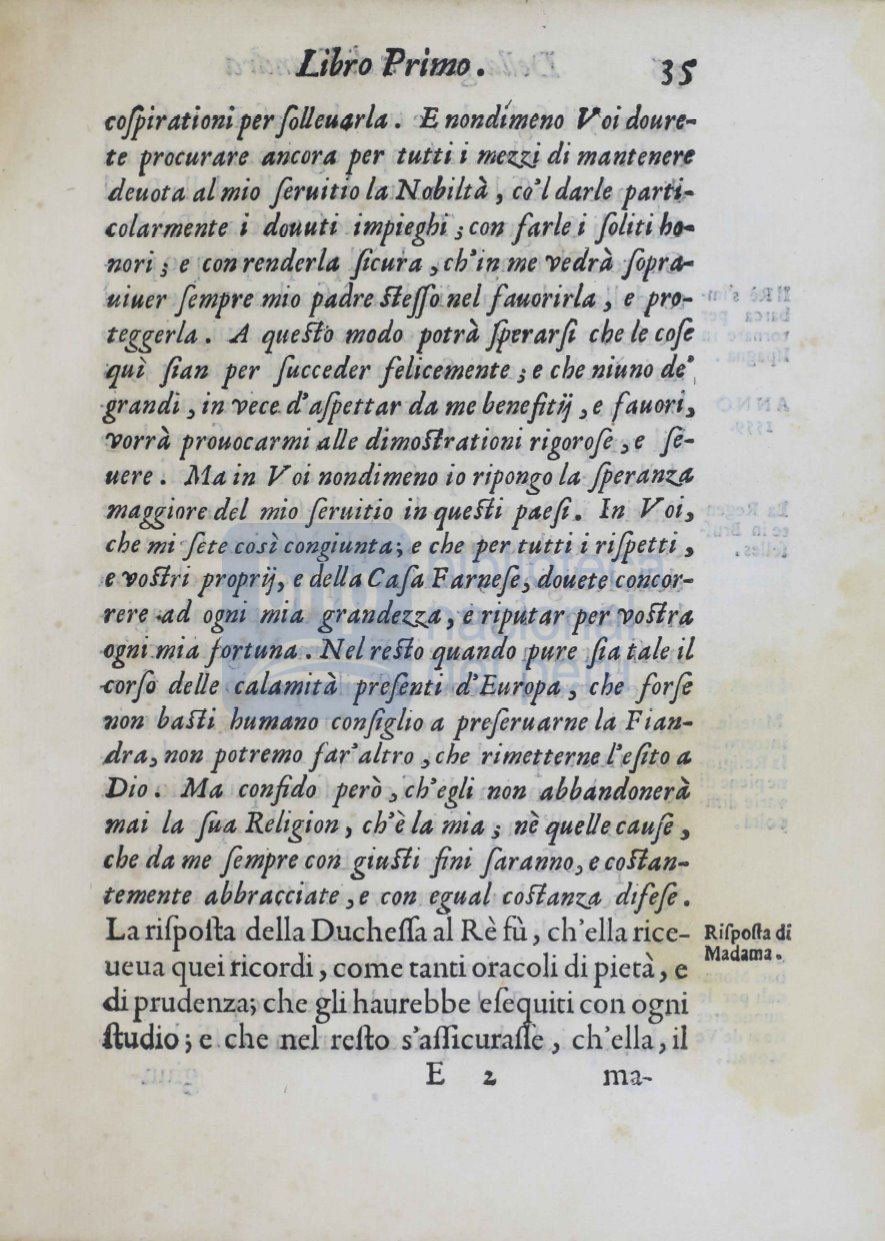 Libro Primo. 35
coſpirationi per ſolleuarla. E nondimeno Voi doure-
te procurare ancora per tutti i mezzi di mantenere
deuota al mio ſeruitio la Nobiltà, co'l darle parti-
colarmente i douuti impieghi; con farle i ſoliti ho-
nori; e con renderla ſicura, ch'in me vedrà ſopra-
uiuer ſempre mio padre ſteſſo nel fauorirla, e pro-
teggerla. A queſto modo potrà ſperarſi che le coſe
quì ſian per ſucceder felicemente; e che niuno de'
grandi, in vece d'aſpettar da me benefitij, e fauori,
vorrà prouocarmi alle dimoſtrationi rigoroſe, e ſe-
uere. Ma in Voi nondimeno io ripongo la ſperanza
maggiore del mio ſeruitio in queſti paeſi. In Voi,
che mi ſete così congiunta; e che per tutti i riſpetti,
e voſtri proprij, e della Caſa Farneſe, douete concor-
rere ad ogni mia grandezza, e riputar per voſtra
ogni mia fortuna. Nel reſto quando pure ſia tale il
corſo delle calamità preſenti d'Europa, che forſe
non baſti humano conſiglio a preſeruarne la Fian-
dra, non potremo far'altro, che rimetterne l'eſito a
Dio. Ma confido però, ch'egli non abbandonerà
mai la ſua Religion, ch'è la mia; nè quelle cauſe,
che da me ſempre con giuſti fini ſaranno, e coſtan-
temente abbracciate, e con egual coſtanza difeſe.
La riſpoſta della Ducheſſa al Rè fù, ch'ella rice-
ueua quei ricordi, come tanti oracoli di pietà, e
di prudenza; che gli haurebbe eſequiti con ogni
ſtudio; e che nel reſto s'aſſicuraſſe, ch'ella, il
Riſpoſta di
Madama.
E 2 ma-